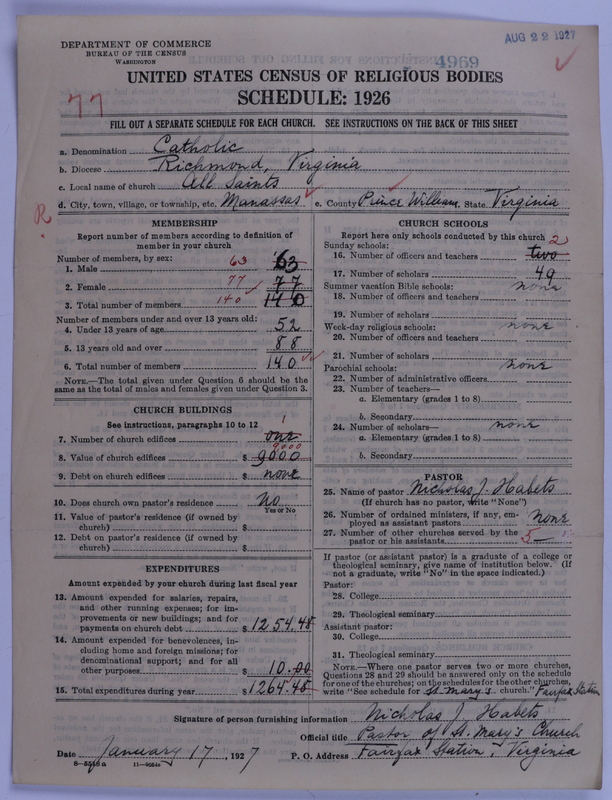 DEPARTMENT OF COMMERCE
BUREAU OF THE CENSUS
WASHINGTON
AUG 22 1927
4969
UNITED STATES CENSUS OF RELIGIOUS BODIES
77
SCHEDULE: 1926
FILL OUT A SEPARATE SCHEDULE FOR EACH CHURCH. SEE INSTRUCTIONS ON THE BACK OF THIS SHEET
a. Denomination Catholic
b. Diocese Richmond, Virginia
c. Local name of church All Saints
d. City, town, village, or township, etc. Manassas e. County Prince William State Virginia
R.
MEMBERSHIP
Report number of members according to definition of
member in your church
Number of members, by sex:
1. Male 63 63
2. Female 77 77
3. Total number of members 140 140
Number of members under and over 13 years old:
4. Under 13 years of age 52
5. 13 years old and over 88
6. Total number of members 140
NOTE.—The total given under Question 6 should be the
same as the total of males and females given under Question 3.
CHURCH BUILDINGS
See instructions, paragraphs 10 to 12
1
7. Number of church edifices one
9000
8. Value of church edifices $ 9000
9. Debt on church edifices $ none
10. Does church own pastor's residence No
Yes or No
11. Value of pastor's residence (if owned by
church) $
12. Debt on pastor's residence (if owned by
church) $
EXPENDITURES
Amount expended by your church during last fiscal year
13. Amount expended for salaries, repairs,
and other running expenses; for im-
provements or new buildings; and for
payments on church debt $ 1254.48
14. Amount expended for benevolences, in-
cluding home and foreign missions; for
denominational support; and for all
other purposes $ 10.00
15. Total expenditures during year $ 1264.48
CHURCH SCHOOLS
Report here only schools conducted by this church
Sunday schools: 2
16. Number of officers and teachers two
17. Number of scholars 49
Summer vacation Bible schools: none
18. Number of officers and teachers
19. Number of scholars
Week-day religious schools: none
20. Number of officers and teachers
21. Number of scholars
Parochial schools: none
22. Number of administrative officers
23. Number of teachers—
a. Elementary (grades 1 to 8)
b. Secondary
24. Number of scholars— none
a. Elementary (grades 1 to 8)
b. Secondary
PASTOR
25. Name of pastor Nicholas J. Habets
(If church has no pastor, write "None")
26. Number of ordained ministers, if any, em-
ployed as assistant pastors none
27. Number of other churches served by the
pastor or his assistants 5
If pastor (or assistant pastor) is a graduate of a college or
theological seminary, give name of institution below. (If
not a graduate, write "No" in the space indicated.)
Pastor:
28. College
29. Theological seminary
Assistant pastor:
30. College
31. Theological seminary
NOTE.—Where one pastor serves two or more churches,
Questions 28 and 29 should be answered only on the schedule
for one of the churches; on the schedules for the other churches,
write "See schedule for St. Mary's church." Fairfax Station
Signature of person furnishing information Nicholas J. Habets
Official title Pastor of St. Mary's Church
Date January 17, 1927 P. O. Address Fairfax Station, Virginia